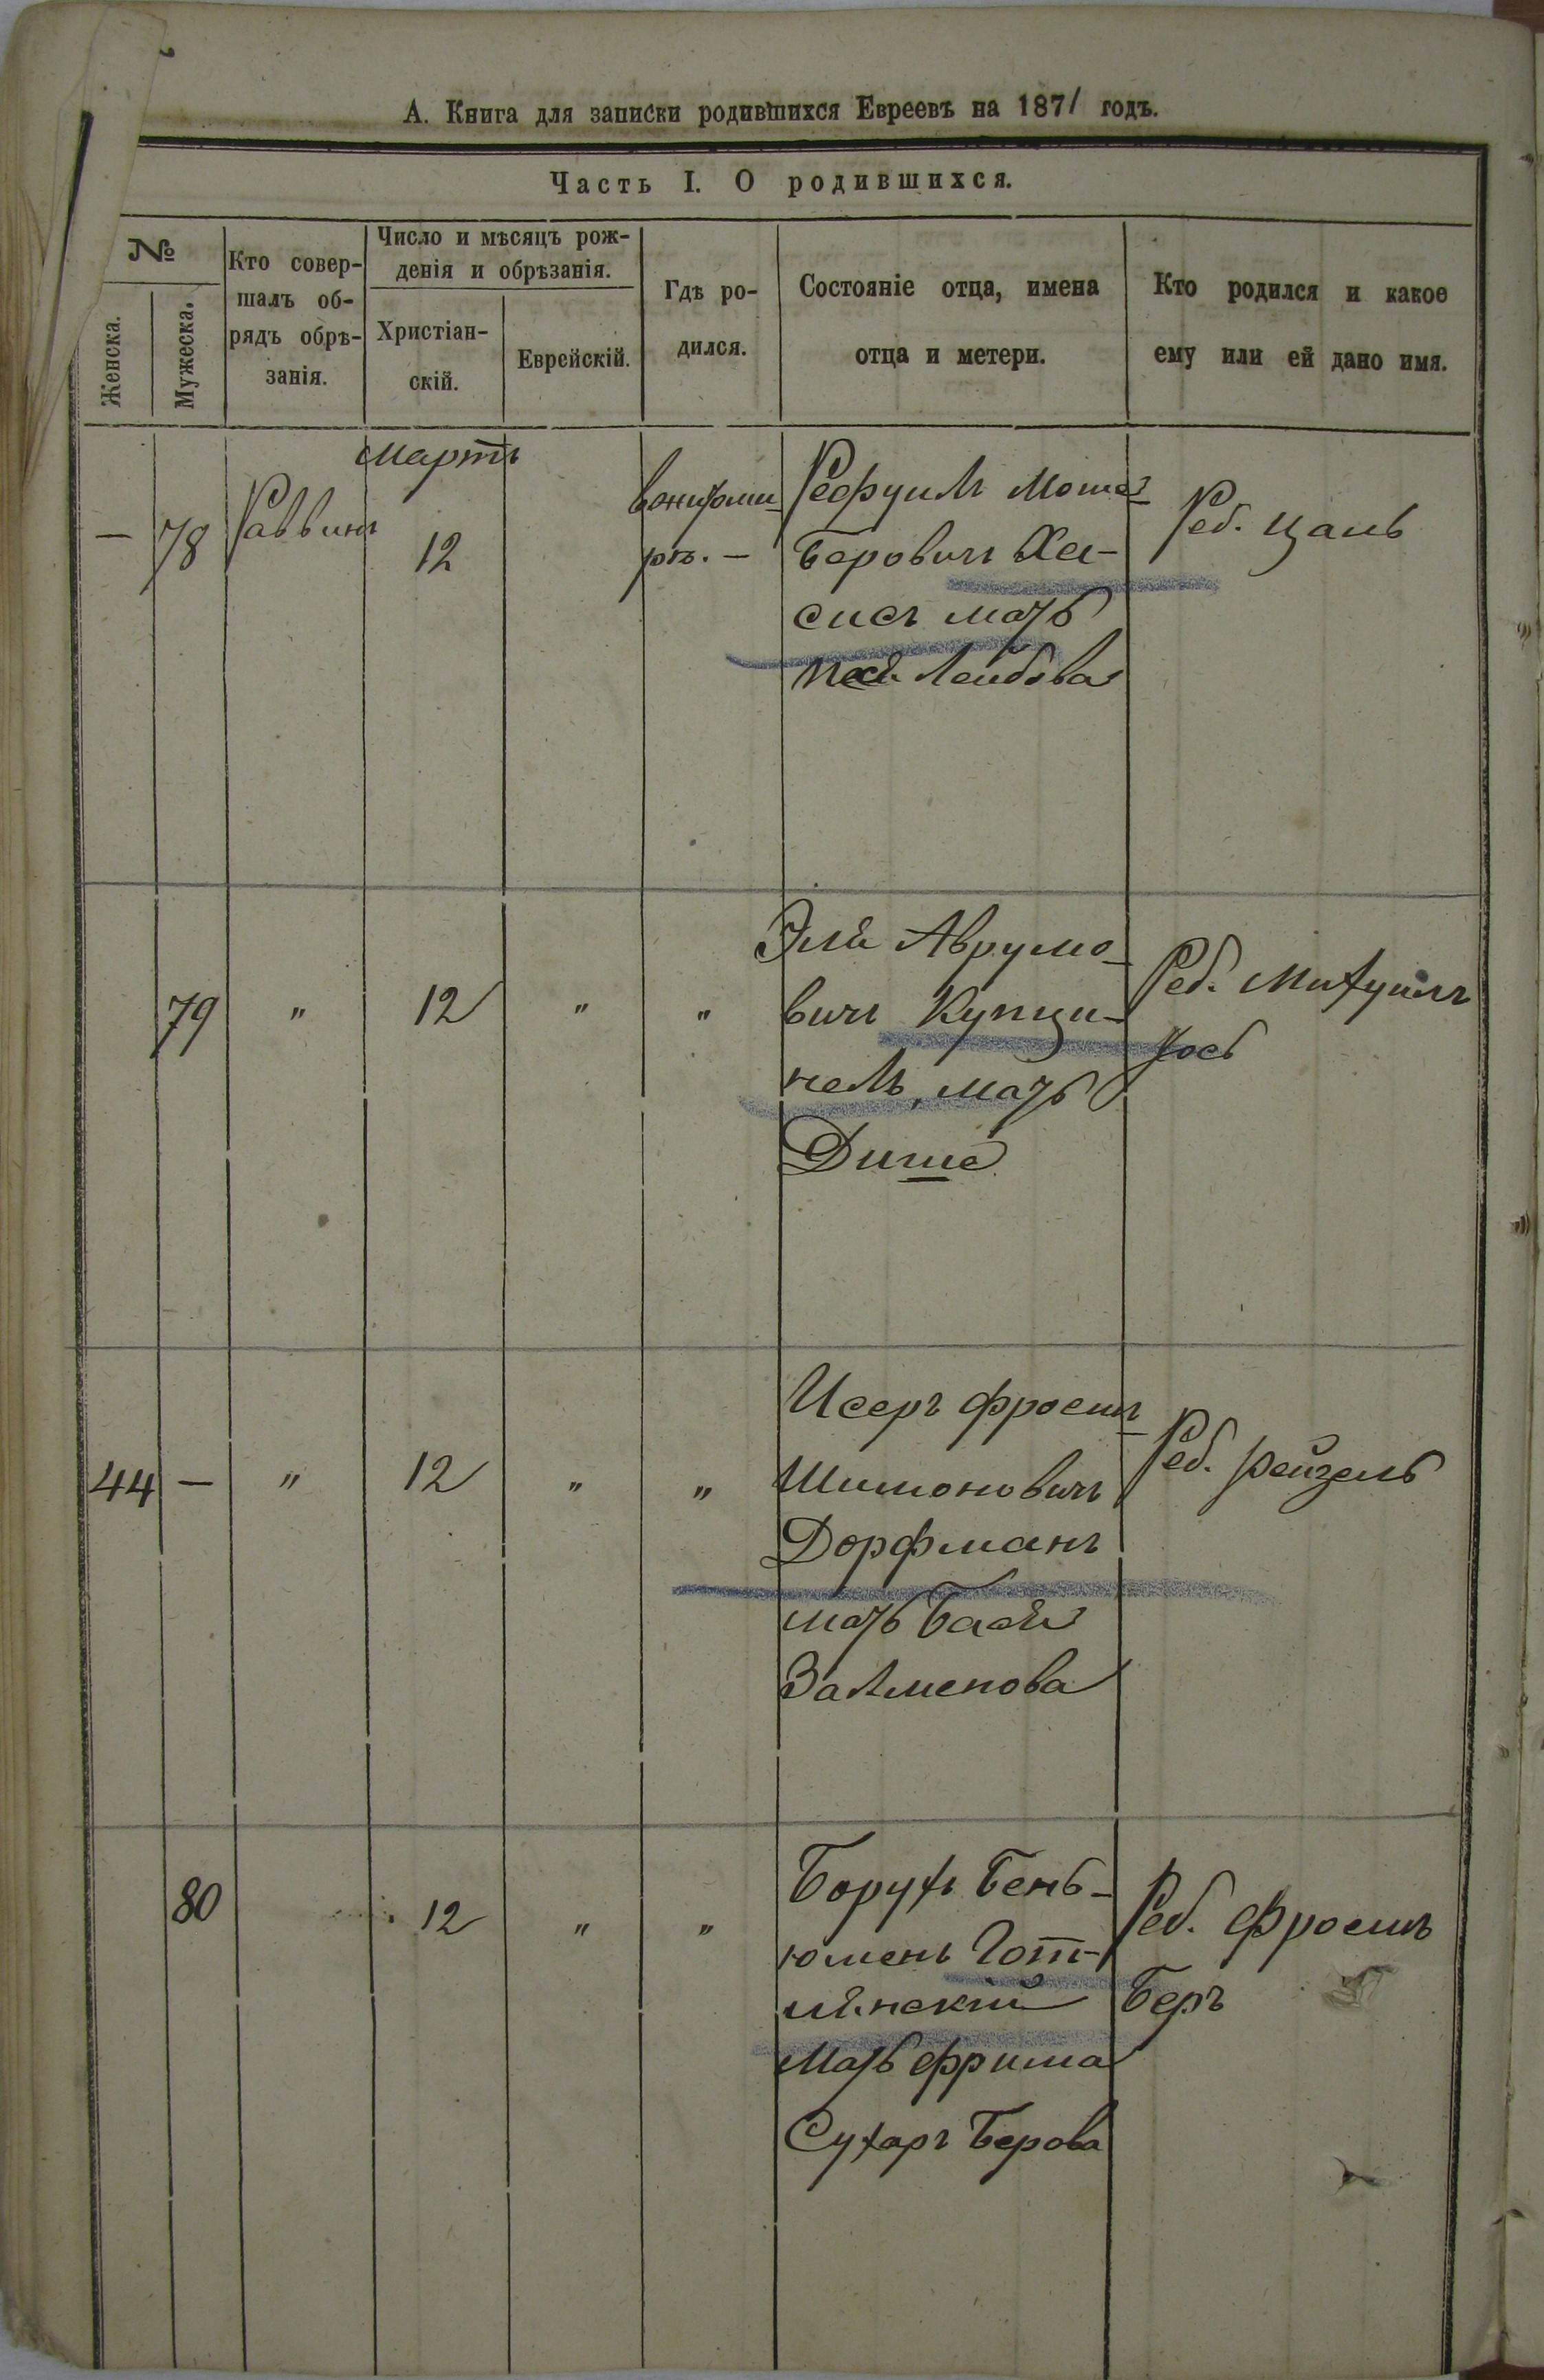 А. Книга для записки родившихся Евреевъ на 1871 годъ.
Часть I. О родившихся.
№
Женска.
Мужеска.
Кто совер-
шалъ об-
рядъ обрѣ-
занія.
Число и мѣсяцъ рож-
денія и обрѣзанія.
Христіан-
скій.
Еврейскій.
Гдѣ ро-
дился.
Состояніе отца, имена
отца и метери.
Кто родился и какое
ему или ей дано имя.
Мартъ
— 78 Раввинъ 12
Рефуилъ Мошъ
Беровичъ Ха-
сисъ мать
Лейбова
Реб. Цаль
79 " 12 " "
Эля Аврумо-
вичъ Купци-
нель, мать
Дише
Реб. Михуилъ
Іось
44 — " 12 " "
Исеръ Фроемъ
Шимоновичъ
Дорфманъ
мать Бася
Залменова
Реб. Рейзель
80 12 " "
Борухъ Бень-
юменъ Гот-
лѣнскій
Мать Фрима
Сухаръ Берова
Реб. Фроемъ
Беръ